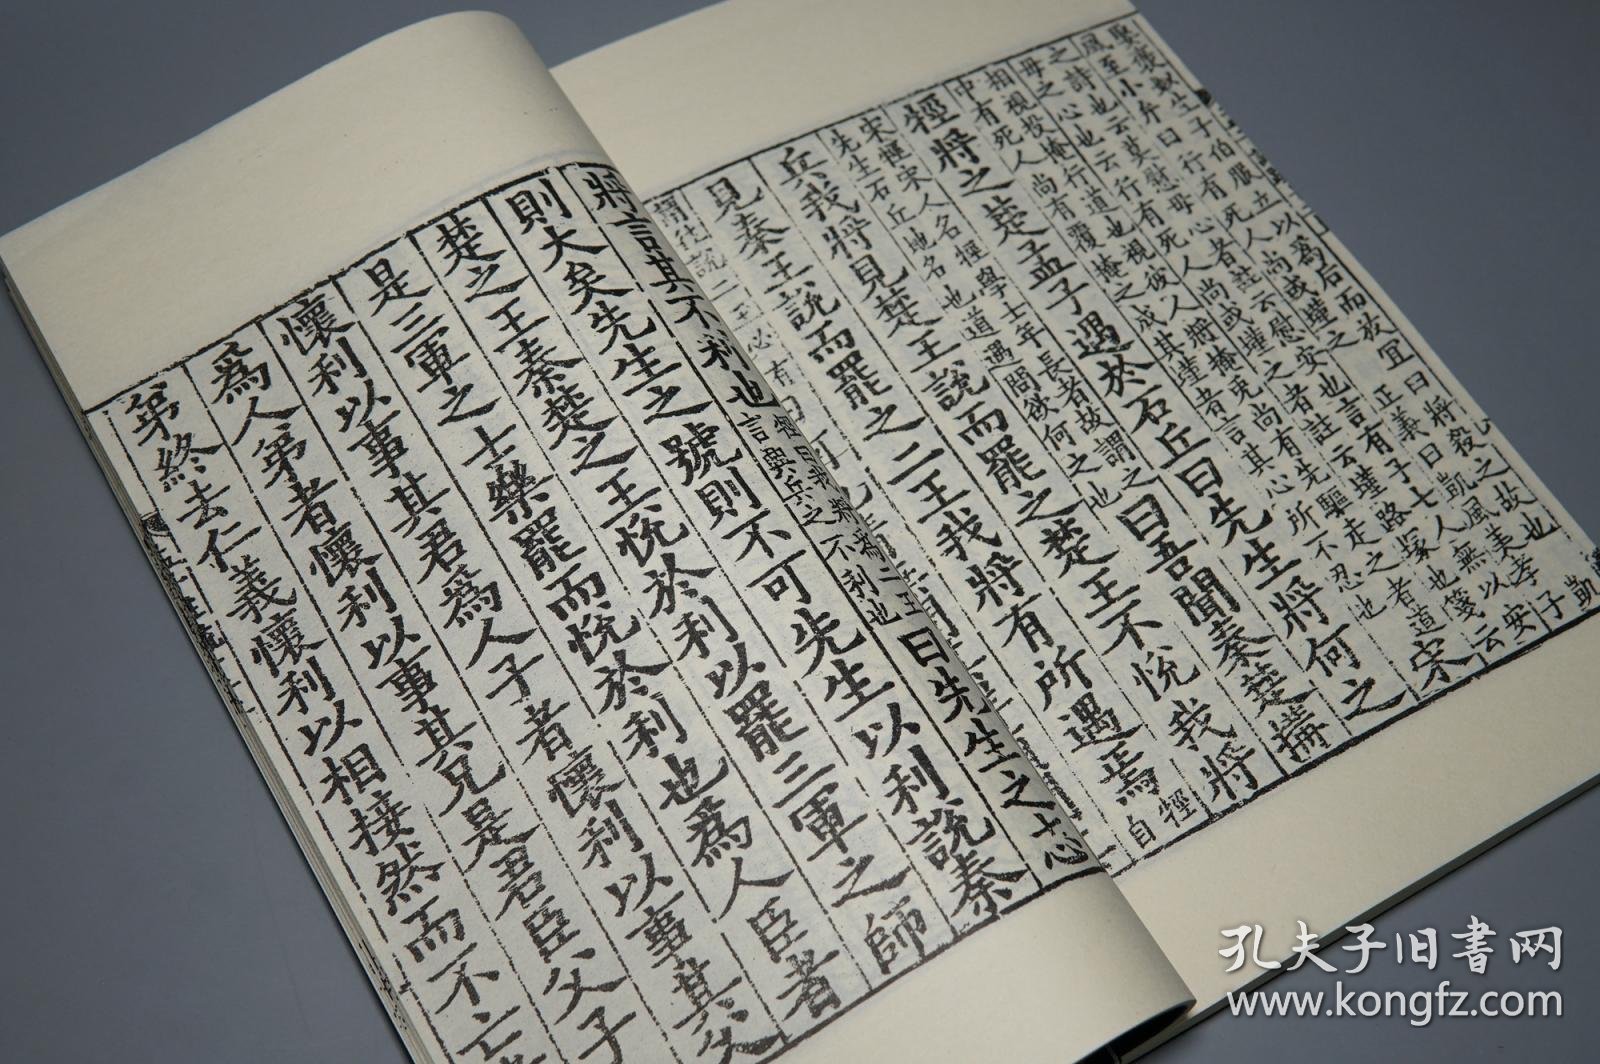 娶褒姒生子伯服立以爲后而放宜曰將殺之故也凱
風至小弁曰行有死人尚或墐之正義曰凱風美孝子
之詩也云莫慰母心者註云慰安也言有子七人無以安
母之心也云行有死人尚或墐之者註云墐路冢也箋云
相視投掩行道也視彼人將掩兎尚有先驅走之者道
中有死人尚有覆掩之成其墐者言其心所不忍也
宋
牼將之楚孟子遇於石丘曰先生將何之
宋牼宋人名牼學士年長者故謂之
先生石丘地名也道遇問欲何之也
曰吾聞秦楚搆
兵我將見楚王說而罷之楚王不悅我將
見秦王說而罷之二王我將有所遇焉
牼自
謂往說二王必有
將言其不利也
牼曰我將爲二王
言興兵之不利也
曰先生之志
則大矣先生之號則不可先生以利說秦
楚之王秦楚之王悅於利以罷三軍之師
是三軍之士樂罷而悅於利也爲人臣者
懷利以事其君爲人子者懷利以事其父
爲人弟者懷利以事其兄是君臣父子
弟終去仁義懷利以相接然而不亡
孔夫子旧书网
www.kongfz.com